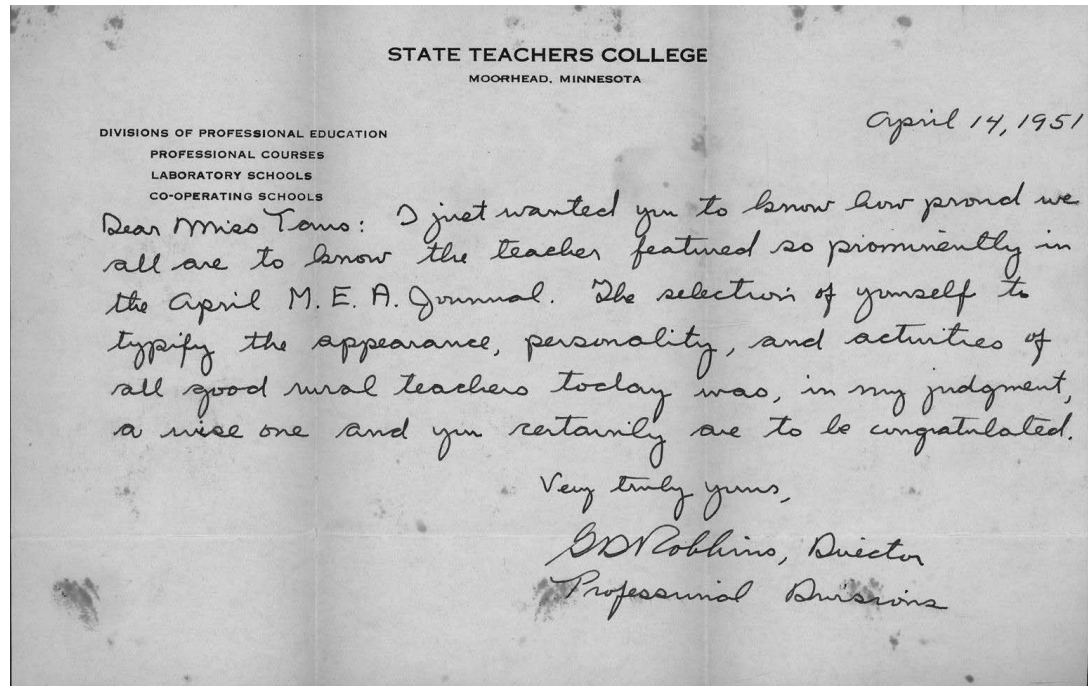 STATE TEACHERS COLLEGE
MOORHEAD, MINNESOTA
April 14, 1951
DIVISIONS OF PROFESSIONAL EDUCATION
PROFESSIONAL COURSES
LABORATORY SCHOOLS
CO-OPERATING SCHOOLS
Dear Miss : I just wanted you to know how proud we
all are to know the teacher featured so prominently in
the April M. E. A. Journal. The selection of yourself to
typify the appearance, personality, and activities of
all good rural teachers today was, in my judgment,
a wise one and you certainly are to be congratulated.
Very truly yours,
G D Robbins, Director
Professional Divisions